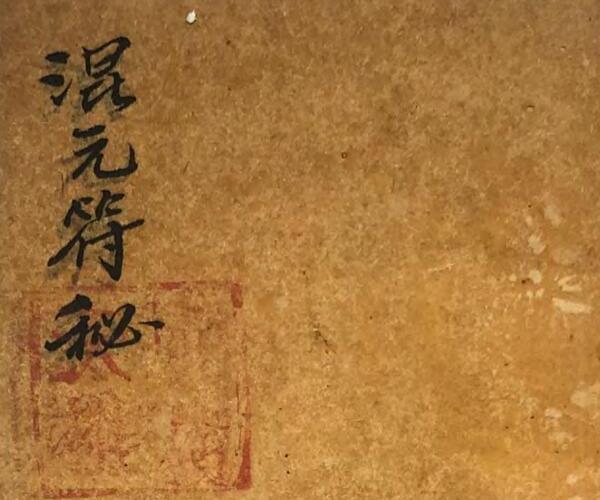 混元符秘